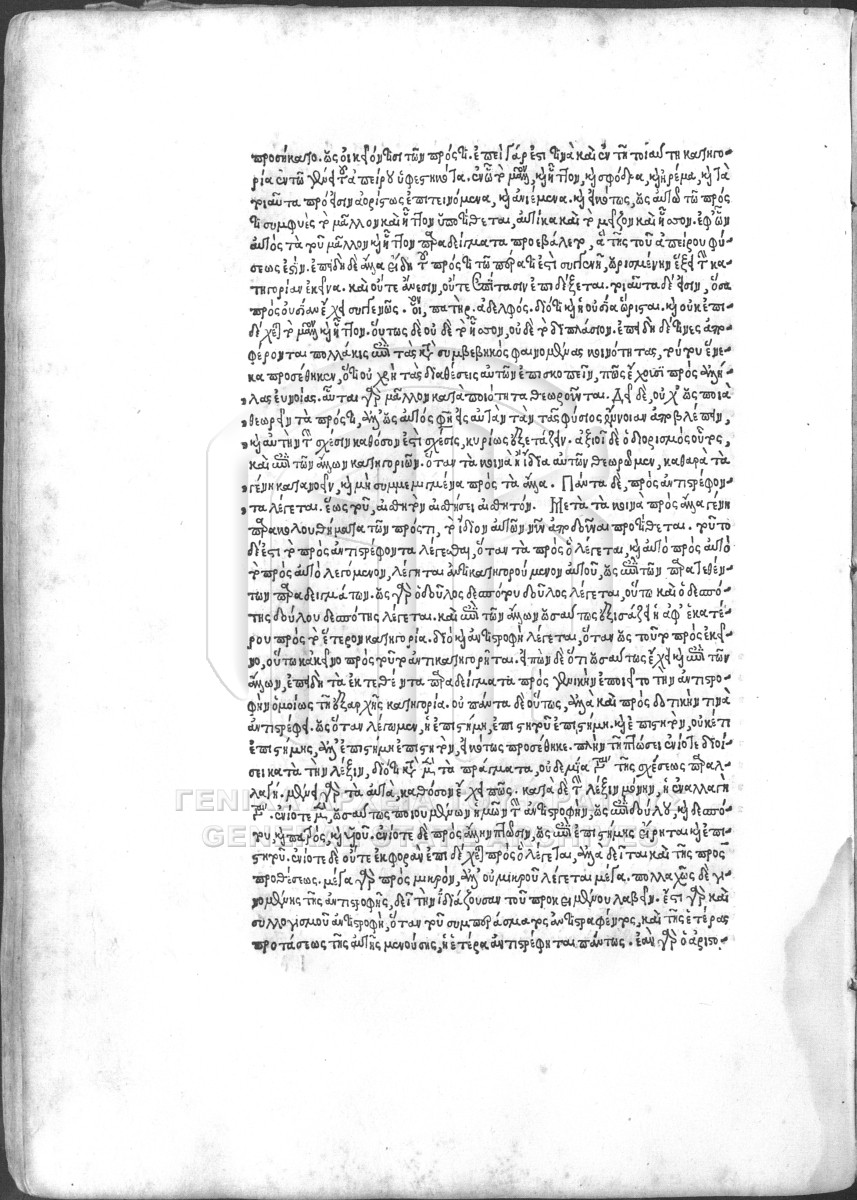 προσήκατο. ὡς οἰκεῖόν τισι τῶν πρός τι. ἐπεὶ γάρ ἐστί τινὰ καὶ ἐν τῇ τοιαύτῃ κατηγο-
ρίᾳ ἐν τῷ τοῦ ἀπείρου ὑφεστηκότα. ἐν ᾧ τὸ μᾶλλον, καὶ ἧττον, καὶ σφόδρα, καὶ ἠρέμα, καὶ τὰ
τοιαῦτα πρόεισιν ἀορίστως ἐπιτεινόμενα, καὶ ἀνιέμενα. καὶ εἰκότως, ὡς αὐτῷ τῷ πρός
τι συμφυὲς τὸ μᾶλλον καὶ ἧττον ὑποτίθεται, αὐτίκα καὶ τὸ μεῖζον καὶ ἧσσον. ἐφ' ὧν
αὐτὸς τὰ τοῦ μᾶλλον καὶ ἧττον παραδείγματα προεβάλετο, ἃ τῆς τοῦ ἀπείρου φύ-
σεως ἐστίν. ἐπειδὴ δὲ ἅμα εἴδη τοῦ πρός τι τῷ πέρατι ἐστὶ συγγενῆ, ὡρισμένην ἕξει τὴν κα-
τηγορίαν ἐκεῖνα. καὶ οὔτε ἄνεσιν, οὔτε ἐπίτασιν ἐπιδέξεται. τοιαῦτα δέ εἰσιν, ὅσα
πρὸς οὐσίαν ἔχει συγγενῶς. οἷον, πατήρ. ἀδελφός. διότι καὶ ἡ οὐσία ὥρισται. καὶ οὐκ ἐπι-
δέχεται τὸ μᾶλλον καὶ ἧττον. οὕτως δὲ οὐδὲ τὸ ἥσσον, οὐδὲ τὸ διπλάσιον. ἐπειδὴ δέ τινες ἀπο-
φέρονται πολλάκις ἐπὶ τὰς κατὰ συμβεβηκὸς φαινομένας κοινότητας, τούτου ἕνε-
κα προσέθηκεν, ὅτι οὐ χρὴ τὰς διαθέσεις αὐτῶν ἐπισκοπεῖν, πῶς ἔχουσι πρὸς ἀλλή-
λας εὐνοίας. αὗται γὰρ μᾶλλον κατὰ ποιότητα θεωροῦνται. Δεῖ δὲ, οὐχ ὡς ποιὰ
θεωρεῖν τὰ πρός τι, ἀλλ' ὡς αὐτός φησι αὐτὰν τὰν τᾶς φύσιος ἔννοιαν ἀποβλέπειν,
καὶ αὐτὴν τὴν σχέσιν καθόσον ἐστὶ σχέσις, κυρίως ἐξετάζειν. ἀξιοῖ δὲ ὁ διορισμὸς οὗτος,
καὶ ἐπὶ τῶν ἄλλων κατηγοριῶν. ὅταν τὰ κοινὰ ἢ ἴδια αὐτῶν θεωρῶμεν, καθαρὰ τὰ
γένη κατανοεῖν, καὶ μὴ συμμεμιγμένα πρὸς τὰ ἄλλα. Πάντα δὲ, πρὸς ἀντιστρέφον-
τα λέγεται. ἕως τοῦ, αἰσθητὸν αἰσθήσει αἰσθητόν. Μετὰ τὰ κοινὰ πρὸς ἄλλα γένη
παρακολουθήματα τῶν πρός τι, τὸ ἴδιον αὐτῶν νῦν ἀποδοῦναι προτίθεται. τοῦτο
δέ ἐστι τὸ πρὸς ἀντιστρέφοντα λέγεσθαι, ὅταν τὰ πρὸς ὃ λέγεται, καὶ αὐτὸ πρὸς αὐτὸ
τὸ πρὸς αὐτὸ λεγόμενον, λέγηται ἀντικατηγορούμενον αὐτοῦ, ὡς ἐπὶ τῶν παρατεθέν-
των παραδειγμάτων. ὡς γὰρ ὁ δοῦλος δεσπότου δοῦλος λέγεται, οὕτω καὶ ὁ δεσπό-
της δούλου δεσπότης λέγεται. καὶ ἐπὶ τῶν ἄλλων ὡσαύτως ἐξισάζει ἡ ἀφ' ἑκατέ-
ρου πρὸς τὸ ἕτερον κατηγορία. διὸ καὶ ἀντιστροφὴ λέγεται, ὅταν ὡς τοῦτο πρὸς ἐκεῖ-
νο, οὕτω κἀκεῖνο πρὸς τοῦτο ἀντικατηγορῆται. εἰπὼν δὲ ὅτι ὡσαύτως ἔχει καὶ ἐπὶ τῶν
ἄλλων, ἐπειδὴ τὰ ἐκτεθέντα παραδείγματα πρὸς γενικὴν ἐποιεῖτο τὴν ἀντιστρο-
φὴν ὁμοίως τῇ ἐξαρχῆς κατηγορίᾳ. οὐ πάντα δὲ οὕτως, ἀλλὰ καὶ πρὸς δοτικὴν τινὰ
ἀντιστρέφει. ὡς ὅταν λέγωμεν, ἡ ἐπιστήμη, ἐπιστητοῦ ἐπιστήμη. καὶ ἐπιστητὸν, οὐκέτι
ἐπιστήμης, ἀλλ' ἐπιστήμῃ ἐπιστητὸν, εἰκότως προσέθηκε. πλὴν τῇ πτώσει ἐνίοτε διοί-
σει κατὰ τὴν λέξιν, διότι κατὰ μὲν τὰ πράγματα, οὐδεμία τῆς σχέσεως παραλ-
λαγή. μένει γὰρ τὰ αὐτὰ, καθόσον ἔχει πως. κατὰ δὲ τὴν λέξιν μόνην, ἡ ἐναλλαγὴ
ἐνίοτε μὲν, ὡσαύτως ποιουμένων ἡμῶν τὴν ἀντιστροφὴν, ὡς ἐπὶ δούλου, καὶ δεσπό-
του, καὶ πατρός, καὶ υἱοῦ. ἐνίοτε δὲ πρὸς ἄλλην πτῶσιν, ὡς ἐπὶ ἐπιστήμης εἴρηται καὶ ἐπι-
στητοῦ. ἐνίοτε δὲ οὔτε ἐκφορὰν ἐπιδέχεται πρὸς ὃ λέγεται, ἀλλὰ δεῖται καὶ τῆς πρὸς
προθέσεως. μέγα γὰρ πρὸς μικρὸν, ἀλλ' οὐ μικροῦ λέγεται μέγα. πολλαχῶς δὲ γι-
νομένης τῆς ἀντιστροφῆς, δεῖ τὴν ἰδιάζουσαν τοῦ προκειμένου λαβεῖν. ἔστι γὰρ καὶ
συλλογισμοῦ ἀντιστροφὴ, ὅταν τοῦ συμπεράσματος ἀντιστραφέντος, καὶ τῆς ἑτέρας
προτάσεως τῆς αὐτῆς μενούσης, ἡ ἑτέρα ἀντιστρέφηται πάντως. ἐὰν γὰρ ὁ ἀριστο-
ΓΕΝΙΚΑ ΑΡΧΕΙΑ ΤΟΥ ΚΡΑΤΟΥΣ
GENERAL STATE ARCHIVES